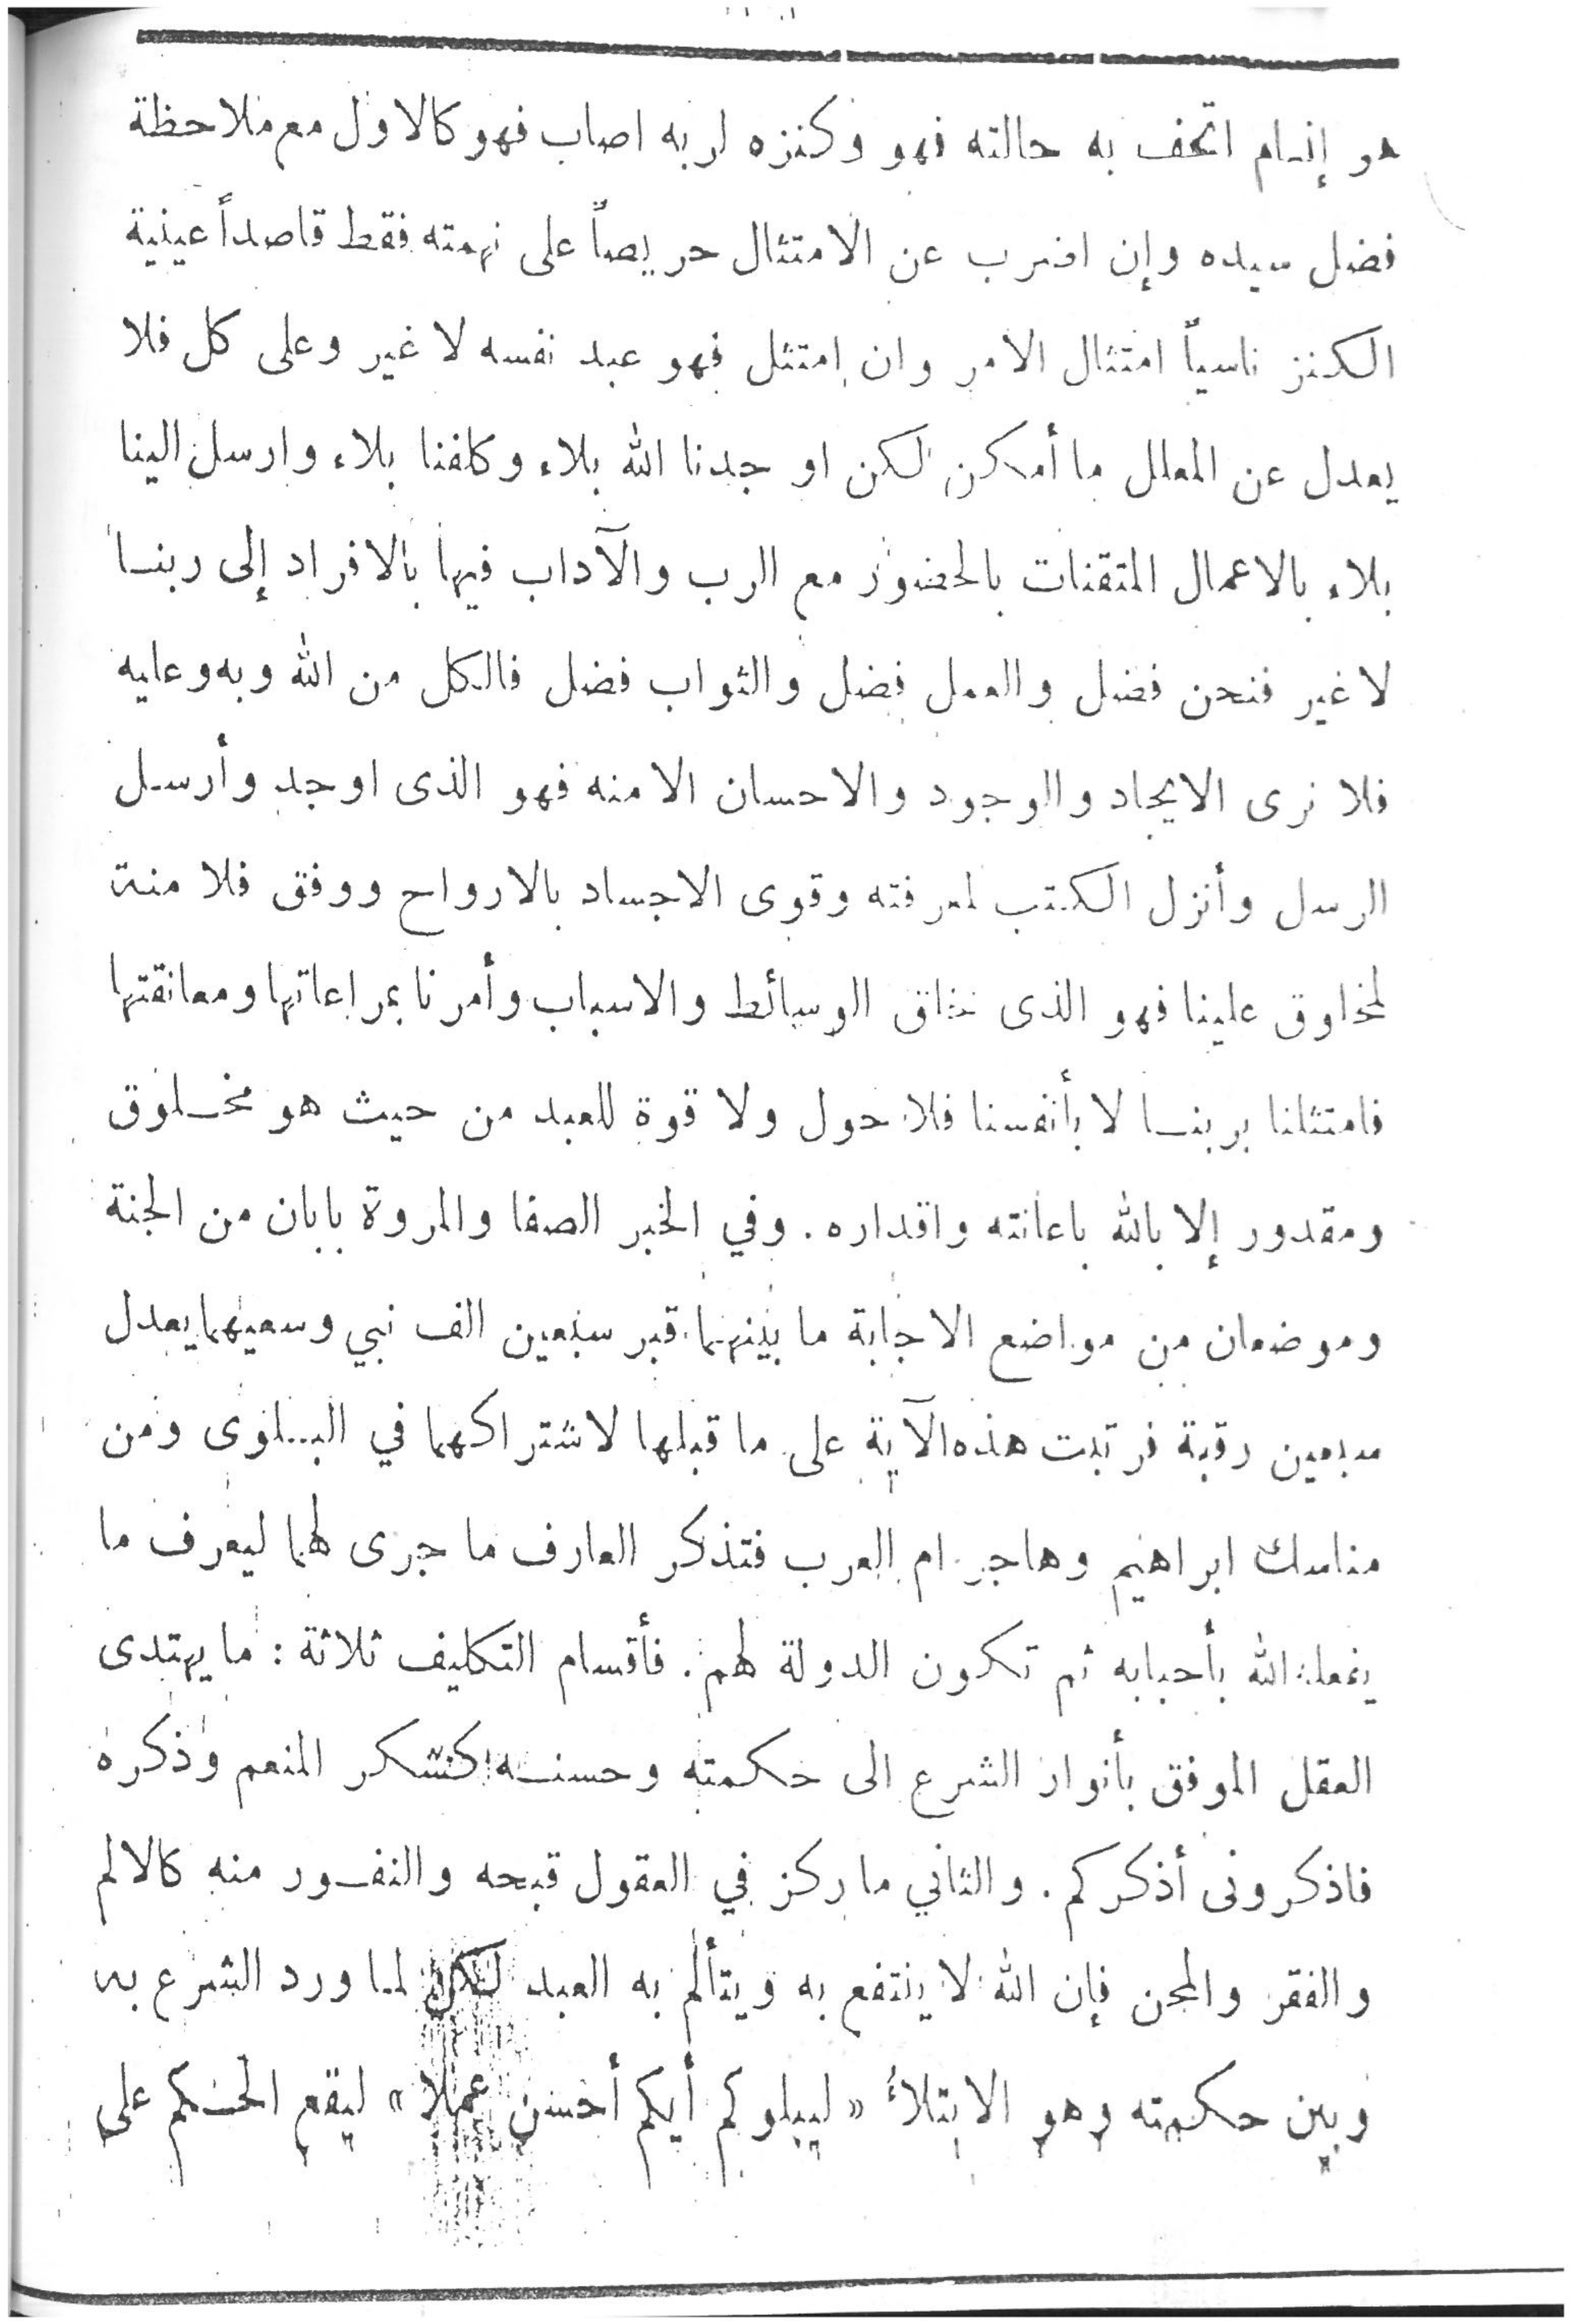 هو إنعام اتحف به حالته فهو وكنزه لربه اصاب فهو كالاول مع ملاحظة
فضل سيده وإن اضرب عن الامتثال حريصاً على نهمته فقط قاصداً عينية
الكنز ناسياً امتثال الامر وان إمتثل فهو عبد نفسه لا غير وعلى كل فلا
يعدل عن المعلل ما أمكن لكن اوجدنا الله بلاء وكلفنا بلاء وارسل الينا
بلاء بالاعمال المتقنات بالحضور مع الرب والآداب فيها بالافراد إلى ربنا
لا غير فنحن فضل والعمل فضل والثواب فضل فالكل من الله وبه وعليه
فلا نرى الايجاد والوجود والاحسان الا منه فهو الذى اوجد وأرسل
الرسل وأنزل الكتب لمعرفته وقوى الاجساد بالارواح ووفق فلا منة
لمخلوق علينا فهو الذى خلق الوسائط والاسباب وأمرنا بمراعاتها ومعانقتها
فامتثلنا بربنا لا بأنفسنا فلا حول ولا قوة للعبد من حيث هو مخلوق
ومقدور إلا بالله باعانته واقداره. وفي الخبر الصفا والمروة بابان من الجنة
وموضعان من مواضع الاجابة ما بينهما قبر سبعين الف نبي وسعيهما يعدل
سبعين رقبة فرتبت هذه الآية على ما قبلها لاشتراكهما في البلوى ومن
مناسك ابراهيم وهاجر ام العرب فتذكر العارف ما جرى لهما ليعرف ما
يفعله الله بأحبابه ثم تكون الدولة لهم. فأقسام التكليف ثلاثة: ما يهتدى
العقل الموفق بأنوار الشرع الى حكمته وحسنه كشكر المنعم وذكره
فاذكرونى أذكركم. والثاني ما ركز في العقول قبحه والنفور منه كالالم
والفقر والمحن فإن الله لا ينتفع به ويتألم به العبد لكن لما ورد الشرع به
وبين حكمته وهو الابتلاء «ليبلوكم أيكم أحسن عملا» ليقع الحكم على